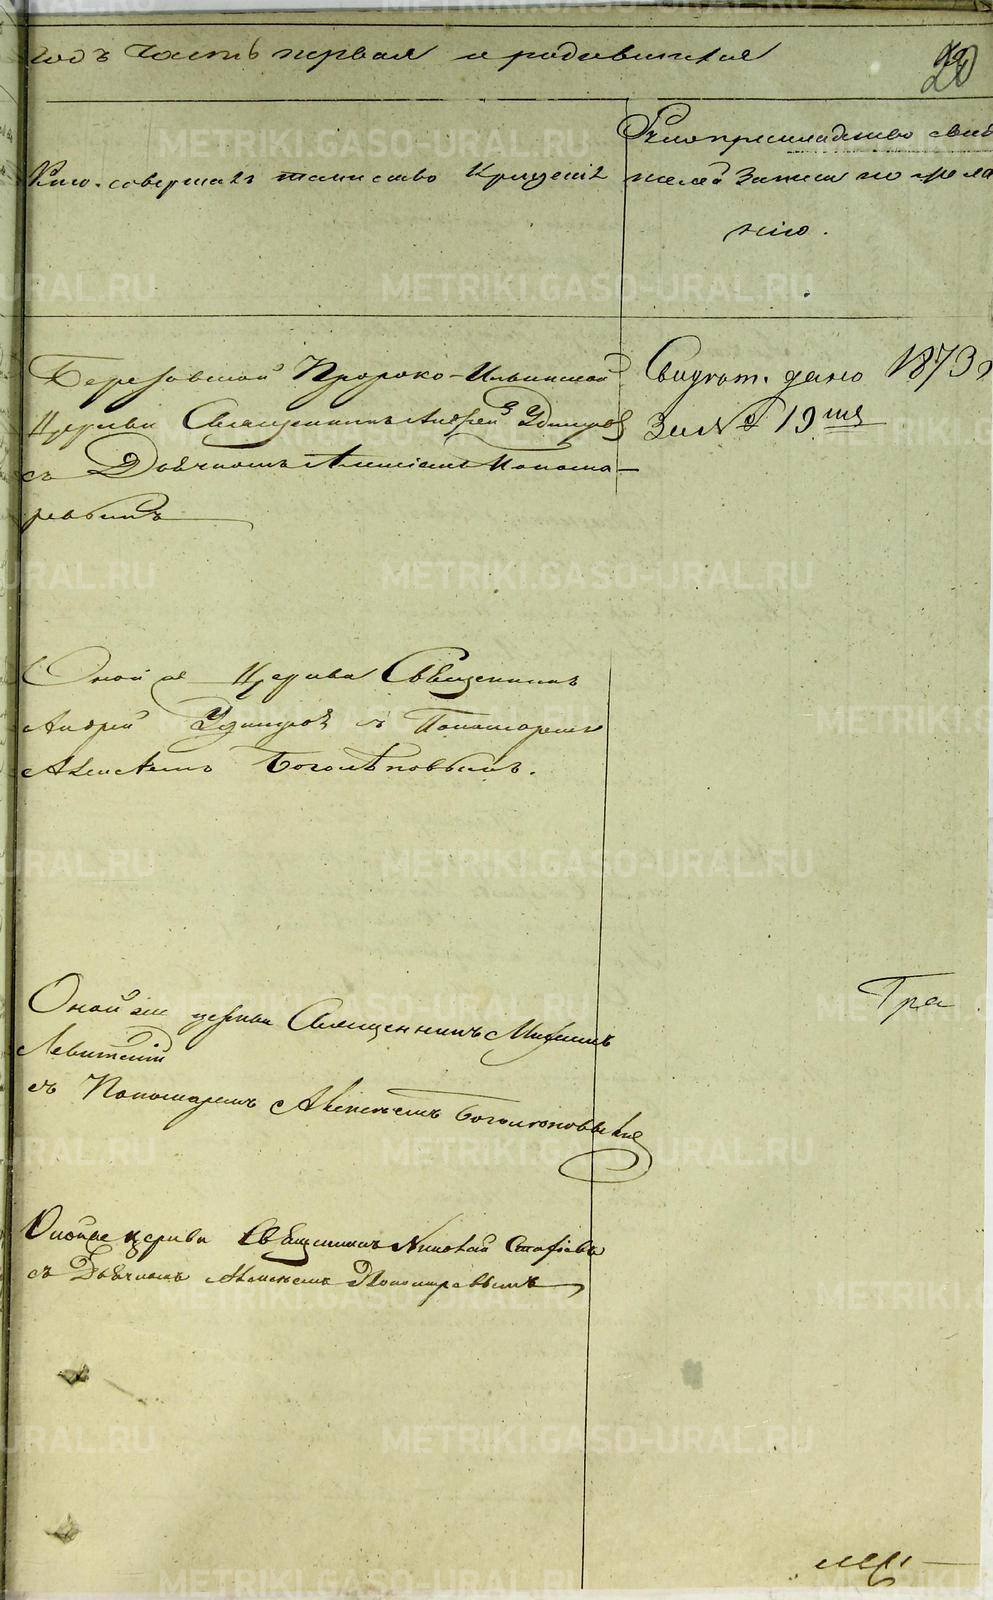 годъ часть первая о родившихся
20
Кто совершалъ таинство Крещенія
Рукоприкладство свидѣ
телей Записи по жела
нію.
Березовской Пророко-Ильинской
Церкви Священникъ Андрей Удинцов
съ Дьячкомъ Алексіемъ Понома-
ревымъ
Свидѣт. дано 1873
за № 19ᵐ
Оной же Церкви Священникъ
Андрей Удинцовъ съ Пономаремъ
Алексѣемъ Боголѣповымъ.
Оной же церкви Священникъ
Левитскій
съ Пономаремъ Алексѣемъ Боголюповымъ
Гра
Оной же церкви Священникъ Николай
съ Дьячкомъ Алексѣемъ Пономаревымъ
METRIKI.GASO-URAL.RU